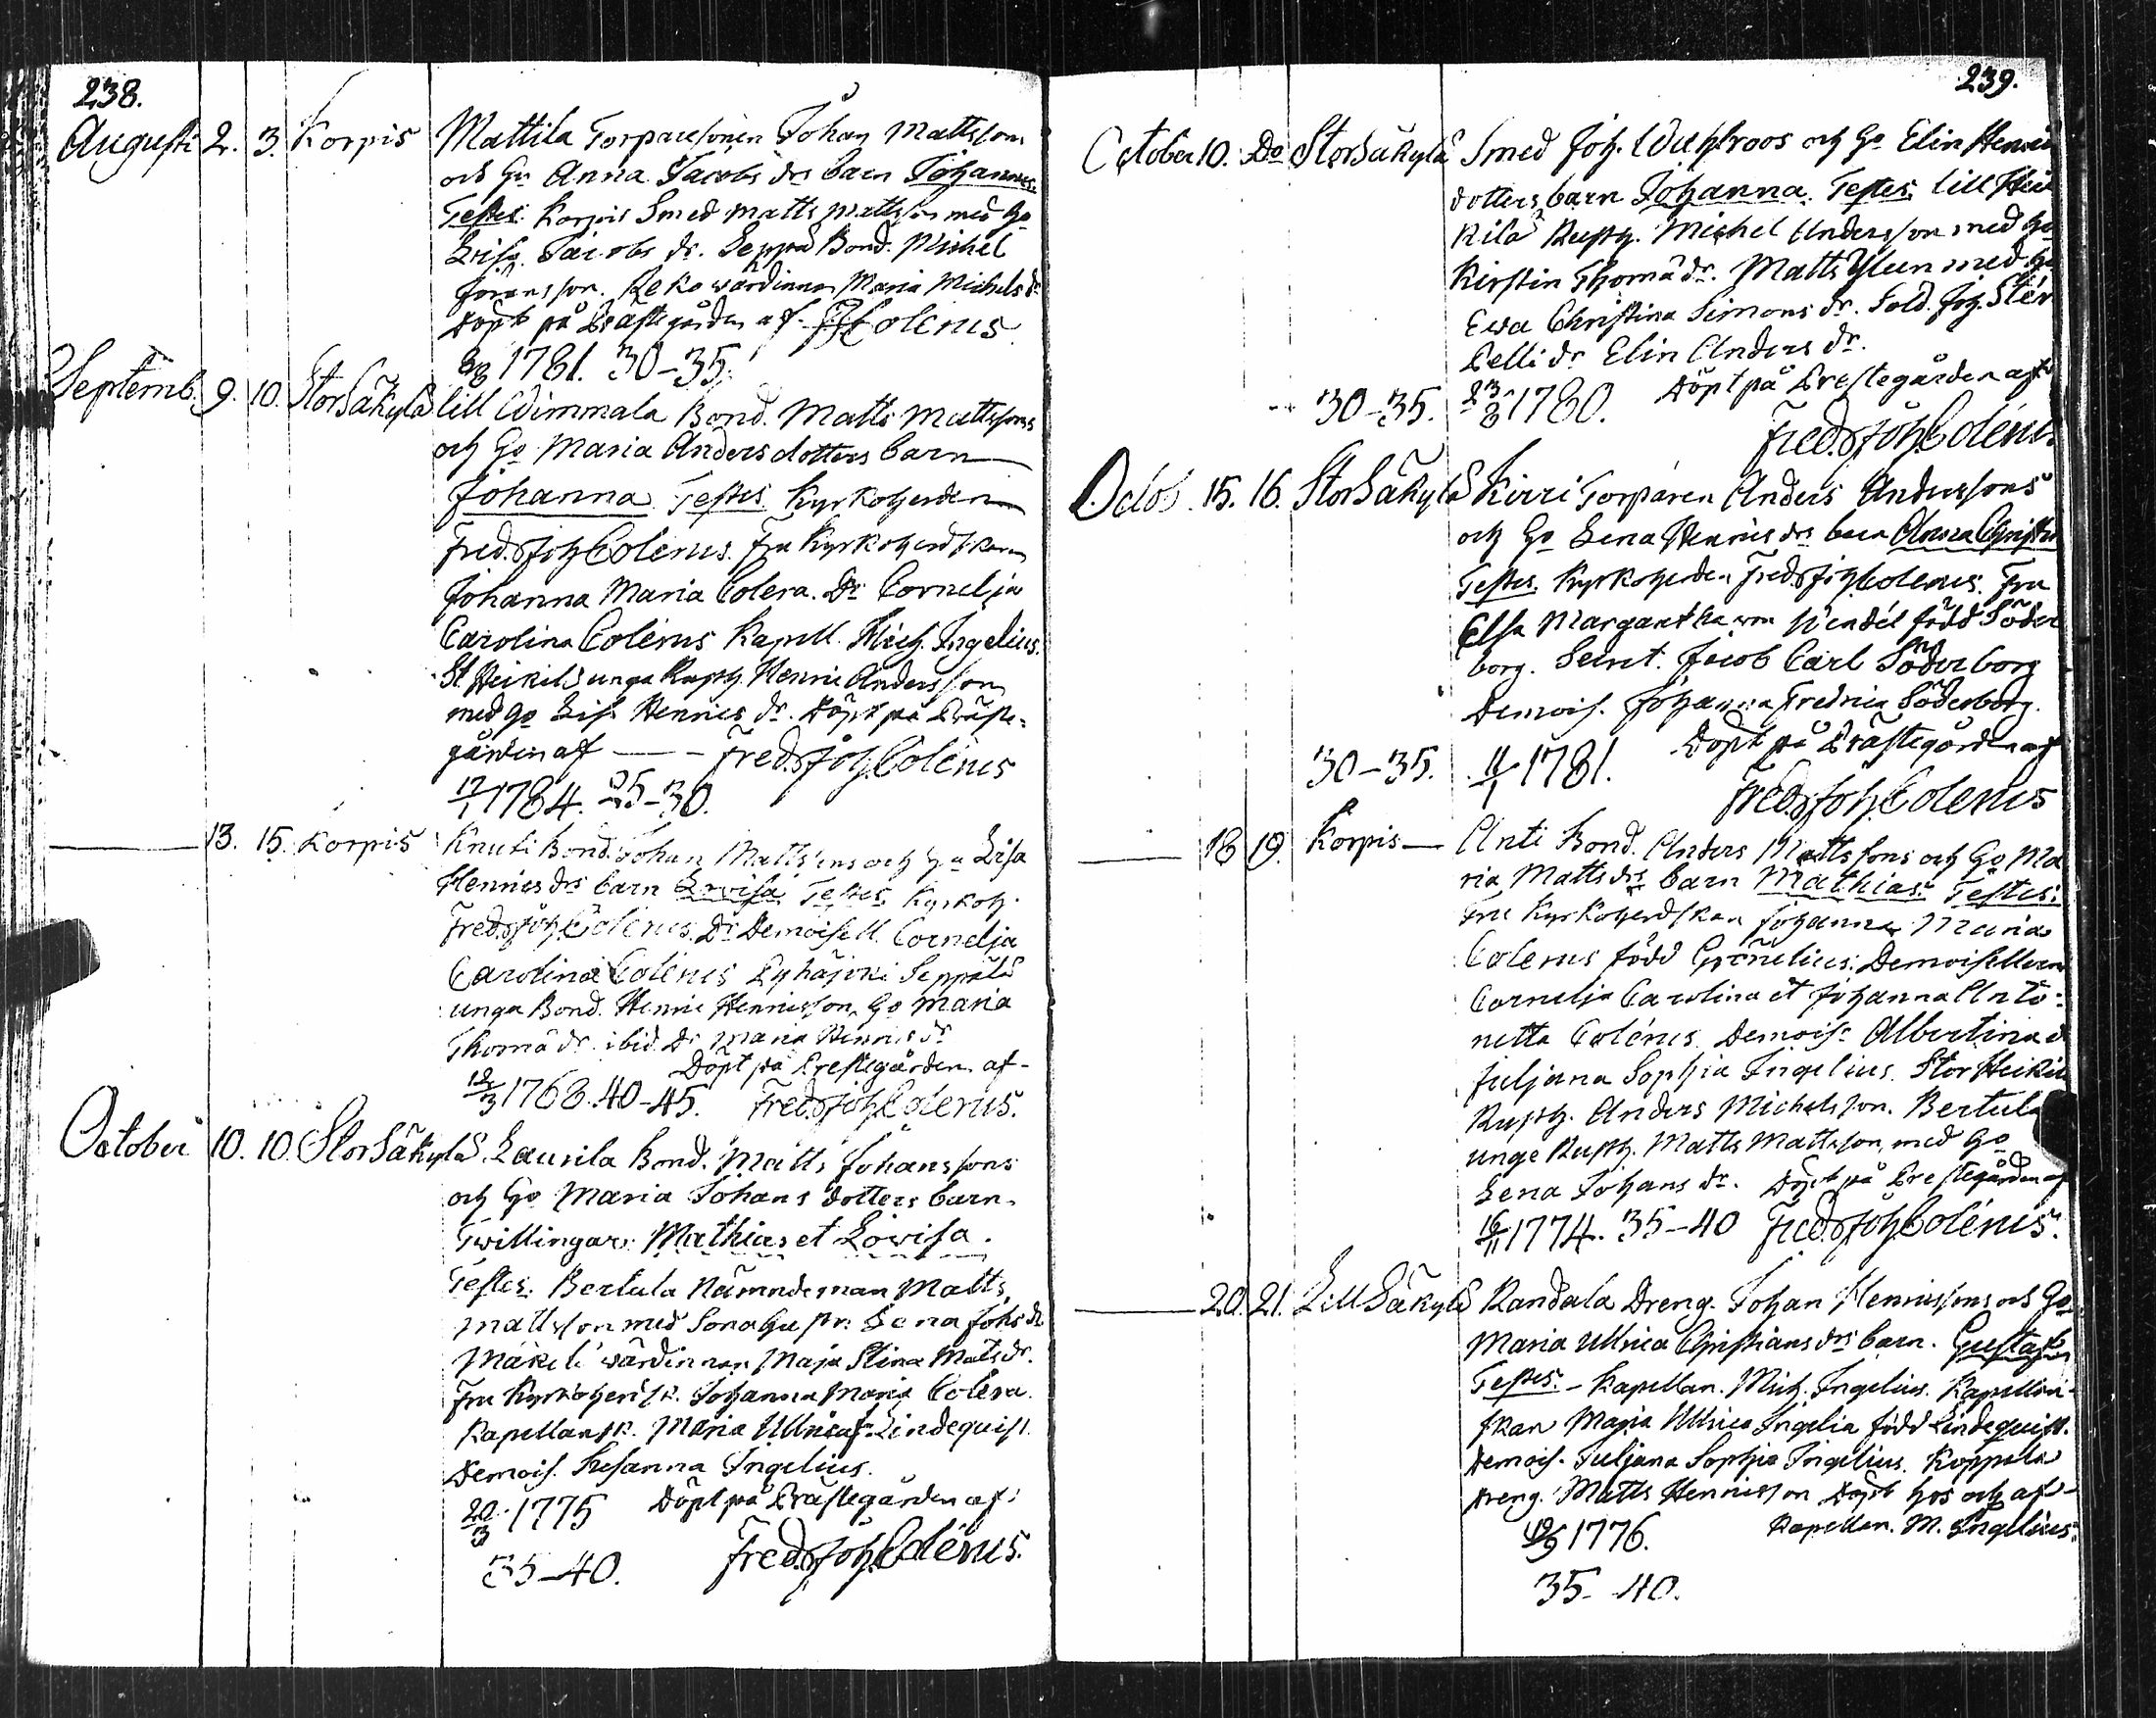 238.
Augusti 2. 3. Korpis Mattila Torparesonen Johan Mattsson
och Ho Anna Jacobs drs barn Johannes.
Testes. Korpis Smed Matts Mattsson med Ho
Lisa Jacobs dr. Seppä Bond. Michel
Göransson. Reko wärdinnan Maria Michels dr
Döpt på Prästegården af F.J. Colerus
1781. 30-35.
Septemb. 9. 10. StorSäkylä lill Wimmala Bond. Matts Mattssons
och Ho Maria Andersdotters barn
Johanna Testes Kyrkoherden
Fred. Joh. Colerus. Fru Kyrkoherdskan
Johanna Maria Colera. Dr Cornelja
Carolina Colérus Kapell. Mich. Ingelius.
St. Heikilä unga Rusth. Henric Andersson
med Ho Lisa Henrics dr. Döpt på Präste-
gården af — Fred. Joh. Colérus
17/1 1784. 25-30.
13. 15. Korpis Knuti Bond. Johan Mattssons och Ho Lisa
Henrics drs barn Lovisa Testes Kyrkoh.
Fred. Joh. Colerus. Dr Demoisell. Cornelja
Carolina Colérus Pyhäjoki Seppälä
unga Bond. Henric Henricsson, Ho Maria
Thomä dr. ibid. Dr Maria Henrics dr
Döpt på Prestegården af-
12/3 1768. 40-45. Fred. Joh. Colerus.
October 10. 10. StorSäkylä. Laurila Bond. Matts Johanssons
och Ho Maria Johans dotters barn
Twillingar: Mathias et Lovisa.
Testes: Bertula Nämndeman Matts
Mattsson med Sonahustr: Lena Johs dr
Mäkilä wärdinnan Maja Stina Mats dr.
Fru Kyrkoherdsk. Johanna Maria Colera.
Kapellansk. Maria Ullrica f. Lindequist.
Demois. Susanna Ingelius.
20/3 1775 Döpt på Prästegården af:
35-40. Fred. Joh. Colérus.
239.
October 10. Do StorSäkylä Smed Joh. Wuhlroos och Ho Elin Henric
dotters barn Johanna. Testes: lill Hei
kilä Rusth. Michel Andersson med Ho
Kirstin Thomä dr. Matts Yleen med Ho
Ewa Christina Simons dr. Sold. Joh. Stén
Pelli dr Elin Anders dr.
30-35. 23/8 1780. Döpt på Prestegården af
Fred. Joh. Colérus
Octob. 15. 16. StorSäkylä Kirri Torparen Anders Anderssons
och Ho Lena Henrics drs barn Anna Christin
Testes. Kyrkoherden Fred. Joh. Colerus. Fru
Elsa Margaretha von Wendel född Söder
borg. Jacob Carl Söderborg
Demois. Johanna Fredrica Söderborg.
Döpt på Prästegården af
30-35. 11/1 1781.
Fred. Joh. Colerus
18 19. Korpis — Anti Bond. Anders Mattssons och Ho Ma
ria Matts drs barn Mathias. Testes:
Fru Kyrkoherdskan Johanna Maria
Colerus född Grönelius. Demoisellerne
Cornelja Carolina et Johanna Anto-
netta Colérus. Demois. Albertina et
Juljana Sophia Ingelius. Stor Heikilä
Rusth. Anders Michelsson. Bertula
unge Rusth. Matts Mattsson, med Ho
Lena Johans dr. Döpt på Prestegården af
16/11 1774. 35-40 Fred. Joh. Colérus.
20. 21. LillSäkylä Randala Dreng. Johan Henricssons och Ho
Maria Ullrica Christians drs barn. Gustaf
Testes. - Kapellan. Mich. Ingelius. Kapellan-
skan Maria Ullrica Ingelia född Lindequist.
Demois. Juljana Sophia Ingelius. Koppala
Dreng. Matts Henricsson Döpt hos och af-
1776. Kapellan. M. Ingelius.
35-40.